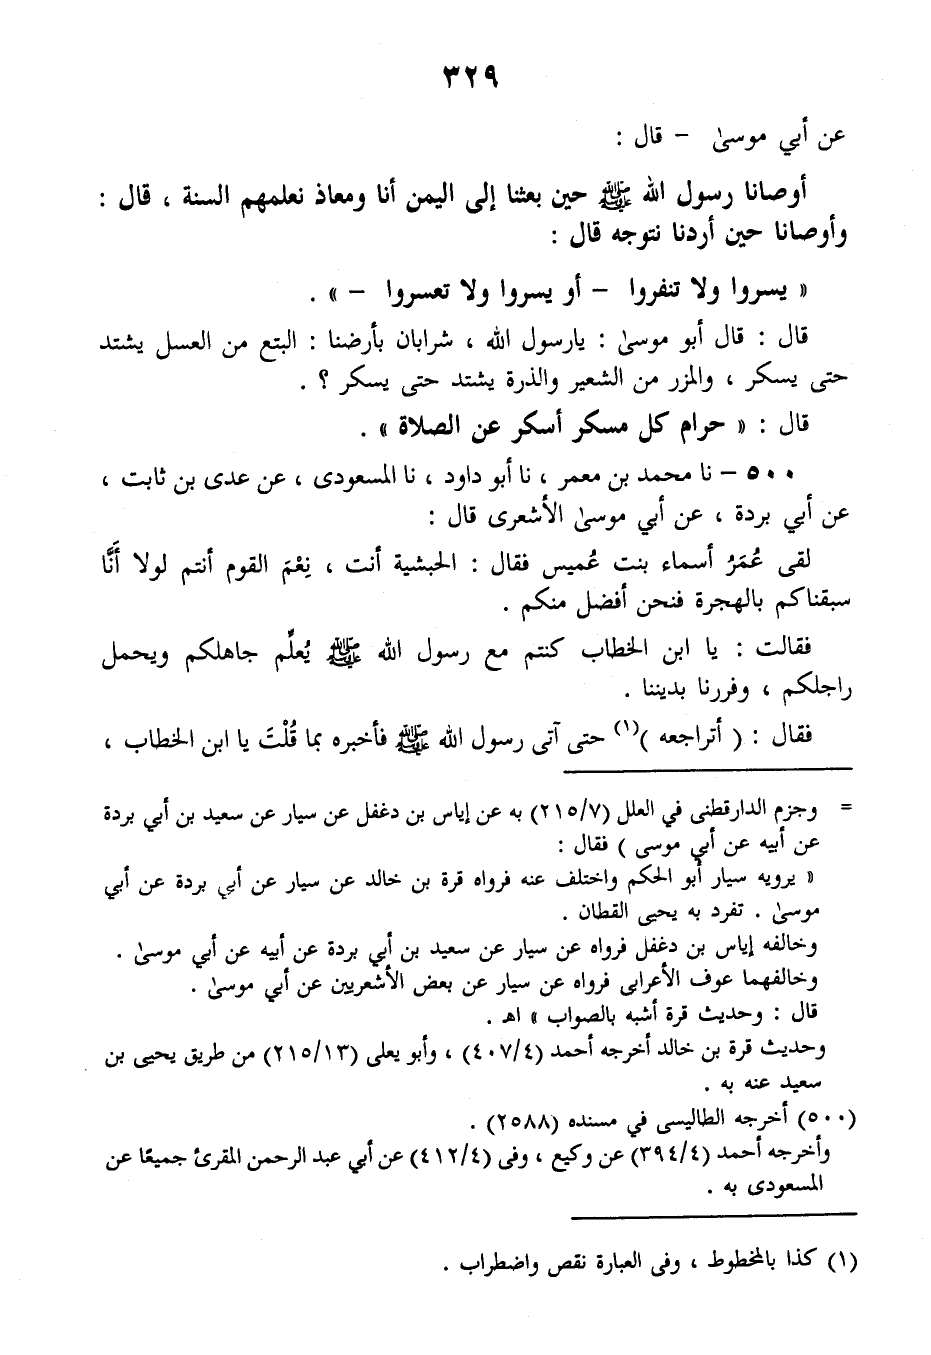 ٣٢٩
عن أبي موسىٰ - قال :
أوصانا رسول الله ﷺ حين بعثنا إلى اليمن أنا ومعاذ نعلمهم السنة ، قال :
وأوصانا حين أردنا نتوجه قال :
« يسروا ولا تنفروا - أو يسروا ولا تعسروا - » .
قال : قال أبو موسىٰ : يارسول الله ، شرابان بأرضنا : البتع من العسل يشتد
حتى يسكر ، والمزر من الشعير والذرة يشتد حتى يسكر ؟ .
قال : « حرام كل مسكر أسكر عن الصلاة » .
٥٠٠ - نا محمد بن معمر ، نا أبو داود ، نا المسعودى ، عن عدى بن ثابت ،
عن أبي بردة ، عن أبي موسىٰ الأشعرى قال :
لقى عُمَرُ أسماء بنت عُميس فقال : الحبشية أنت ، نِعْمَ القوم أنتم لولا أَنَّا
سبقناكم بالهجرة فنحن أفضل منكم .
فقالت : يا ابن الخطاب كنتم مع رسول الله ﷺ يُعلِّم جاهلكم ويحمل
راجلكم ، وفررنا بديننا .
فقال : ( أتراجعه )(١) حتى آتى رسول الله ﷺ فأخبره بما قُلْتَ يا ابن الخطاب ،
= وجزم الدارقطنى في العلل (٢١٥/٧) به عن إياس بن دغفل عن سيار عن سعيد بن أبي بردة
عن أبيه عن أبي موسى ) فقال :
« يرويه سيار أبو الحكم واختلف عنه فرواه قرة بن خالد عن سيار عن أبي بردة عن أبي
موسىٰ . تفرد به يحيى القطان .
وخالفه إياس بن دغفل فرواه عن سيار عن سعيد بن أبي بردة عن أبيه عن أبي موسىٰ .
وخالفهما عوف الأعرابى فرواه عن سيار عن بعض الأشعريين عن أبي موسىٰ .
قال : وحديث قرة أشبه بالصواب » اهـ .
وحديث قرة بن خالد أخرجه أحمد (٤٠٧/٤) ، وأبو يعلى (٢١٥/١٣) من طريق يحيى بن
سعيد عنه به .
(٥٠٠) أخرجه الطاليسى في مسنده (٢٥٨٨) .
وأخرجه أحمد (٣٩٤/٤) عن وكيع ، وفى (٤١٢/٤) عن أبي عبد الرحمن المقرئ جميعًا عن
المسعودى به .
(١) كذا بالمخطوط ، وفى العبارة نقص واضطراب .